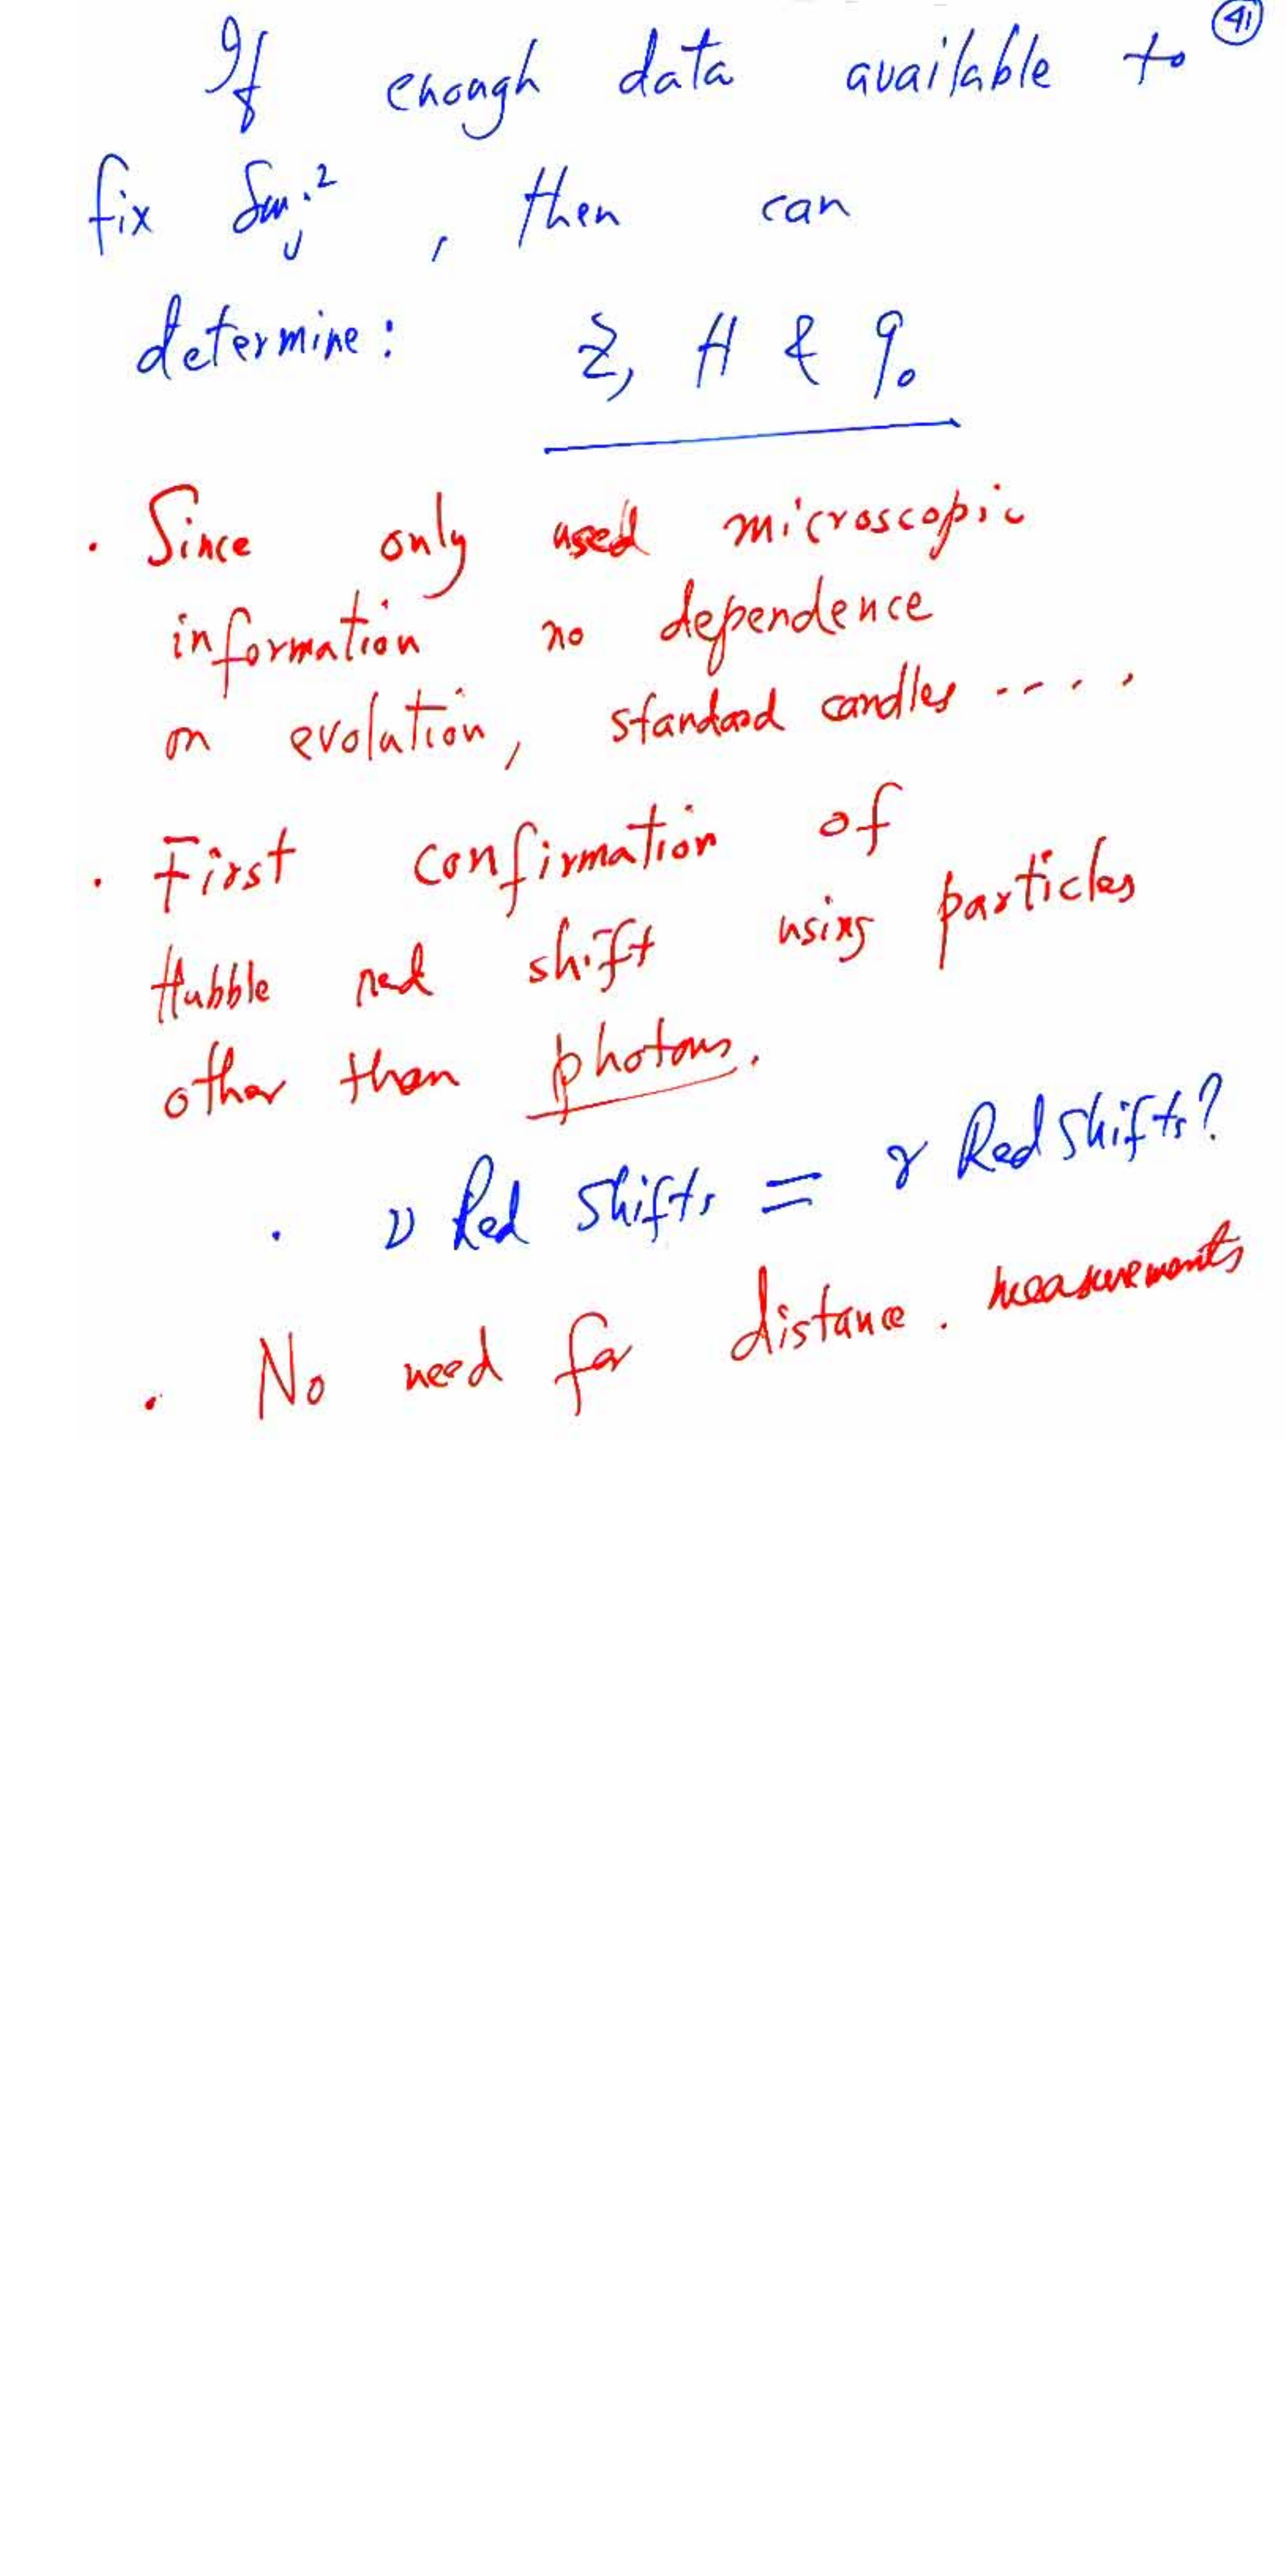 41
If enough data available to
fix δmj², then can
determine: z, H & q₀
· Since only used microscopic
information no dependence
on evolution, standard candles ....
· First confirmation of
Hubble red shift using particles
other than photons.
· ν Red Shifts = γ Red Shifts?
· No need for distance. measurements